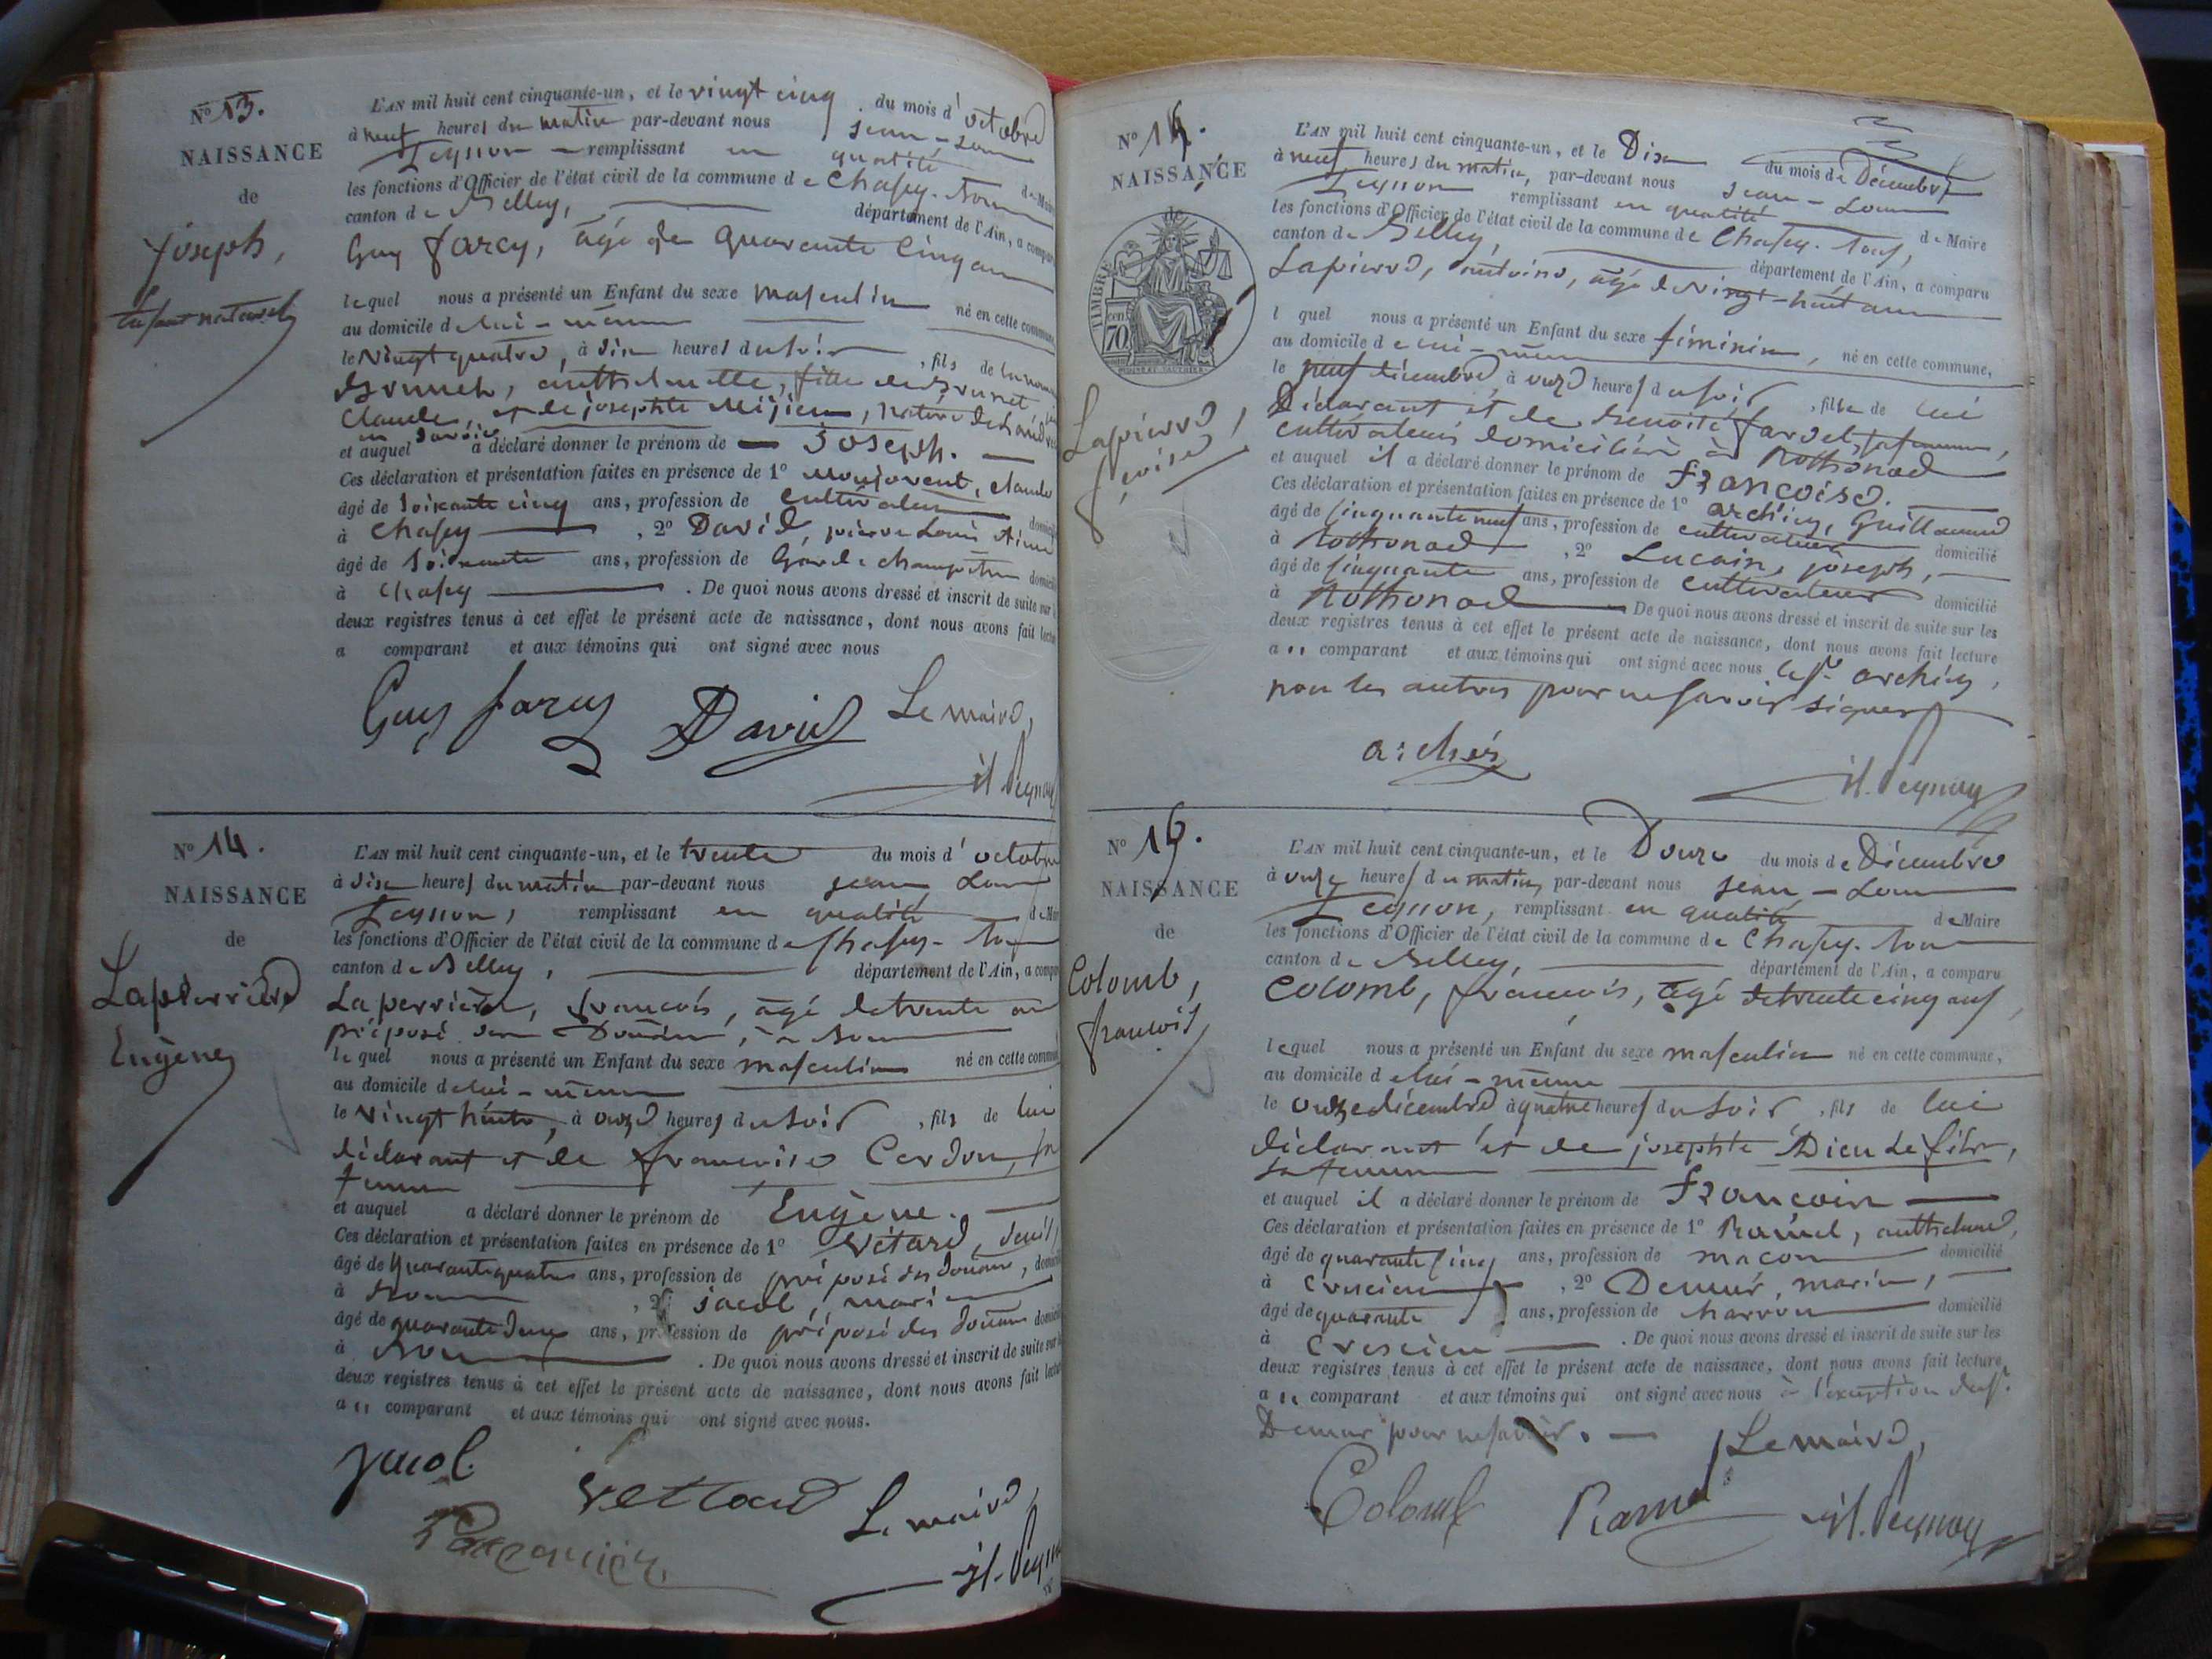 N° 13.
NAISSANCE
de
Joseph,
Enfant naturel
L'AN mil huit cent cinquante-un, et le vingt cinq du mois d'octobre
à neuf heures du matin par-devant nous jean-Louis
remplissant en qualité de Maire
les fonctions d'Officier de l'état civil de la commune de Chasey-
canton de Belley, département de l'Ain, a comparu
Guy farcy, âgé de quarante cinq ans
lequel nous a présenté un Enfant du sexe masculin né en cette commune,
au domicile de lui-même
le vingt quatre, à dix heures du soir, fils de
Brunet, anthelmette, fille de Brunet,
Claude, et de josephte
en Savoie
et auquel a déclaré donner le prénom de Joseph.
Ces déclaration et présentation faites en présence de 1° Monjovent, Claude
âgé de soixante cinq ans, profession de cultivateur
à Chasey, 2° David, pierre Louis
âgé de soixante ans, profession de Garde champêtre
à Chasey. De quoi nous avons dressé et inscrit de suite sur
deux registres tenus à cet effet le présent acte de naissance, dont nous avons fait lecture
a comparant et aux témoins qui ont signé avec nous
Guy farcy David Le maire,
N° 14.
NAISSANCE
de
Laperrière
Eugène
L'AN mil huit cent cinquante-un, et le trente du mois d'octobre
à dix heures du matin par-devant nous jean Louis
remplissant en qualité de Maire
les fonctions d'Officier de l'état civil de la commune de Chasey-
canton de Belley, département de l'Ain, a comparu
Laperrière, francois, âgé de trente ans
préposé
lequel nous a présenté un Enfant du sexe masculin né en cette commune
au domicile de lui-même
le vingt huit, à onze heures du soir, fils de lui
déclarant et de francoise Cerdon, sa
femme
et auquel a déclaré donner le prénom de Eugène.
Ces déclaration et présentation faites en présence de 1° Vétard,
âgé de quarante quatre ans, profession de préposé des douanes,
à 2° jacob,
âgé de quarante deux ans, profession de préposé des douanes
à . De quoi nous avons dressé et inscrit de suite sur
deux registres tenus à cet effet le présent acte de naissance, dont nous avons fait lecture
au comparant et aux témoins qui ont signé avec nous.
Le maire,
N° 15.
NAISSANCE
de
TIMBRE
70
Lapierre,
L'AN mil huit cent cinquante-un, et le Dix du mois de Décembre
à neuf heures du matin, par-devant nous jean-Louis
remplissant en qualité de Maire
les fonctions d'Officier de l'état civil de la commune de Chasey-
canton de Belley, département de l'Ain, a comparu
Lapierre, antoine, âgé de vingt-huit ans
lequel nous a présenté un Enfant du sexe féminin, né en cette commune,
au domicile de lui-même
le neuf décembre, à onze heures du soir, fille de lui
Déclarant et de Benoite sa femme,
cultivateurs domiciliés à Rothonod
et auquel il a déclaré donner le prénom de Françoise.
Ces déclaration et présentation faites en présence de 1° archiey, Guillaume
âgé de cinquante neuf ans, profession de cultivateur domicilié
à Rothonod, 2° Lucain, joseph,
âgé de cinquante ans, profession de cultivateur domicilié
à Rothonod De quoi nous avons dressé et inscrit de suite sur les
deux registres tenus à cet effet le présent acte de naissance, dont nous avons fait lecture
au comparant et aux témoins qui ont signé avec nous
non les autres pour ne savoir signer
N° 16.
NAISSANCE
de
Colomb,
francois,
L'AN mil huit cent cinquante-un, et le Douze du mois de Décembre
à onze heures du matin, par-devant nous jean-Louis
remplissant en qualité de Maire
les fonctions d'Officier de l'état civil de la commune de Chasey-
canton de Belley, département de l'Ain, a comparu
Colomb, francois, âgé de trente cinq ans,
lequel nous a présenté un Enfant du sexe masculin né en cette commune,
au domicile de lui-même
le onze décembre à quatre heures du soir, fils de lui
déclarant et de josephte
sa femme
et auquel il a déclaré donner le prénom de François
Ces déclaration et présentation faites en présence de 1° Ramel, anthelme,
âgé de quarante cinq ans, profession de maçon domicilié
à Cressieu, 2° Demur, marin,
âgé de quarante ans, profession de charron domicilié
à Cressieu. De quoi nous avons dressé et inscrit de suite sur les
deux registres tenus à cet effet le présent acte de naissance, dont nous avons fait lecture
au comparant et aux témoins qui ont signé avec nous à l'exception du sr.
Demur pour ne savoir. Le maire,
Colomb Ramel